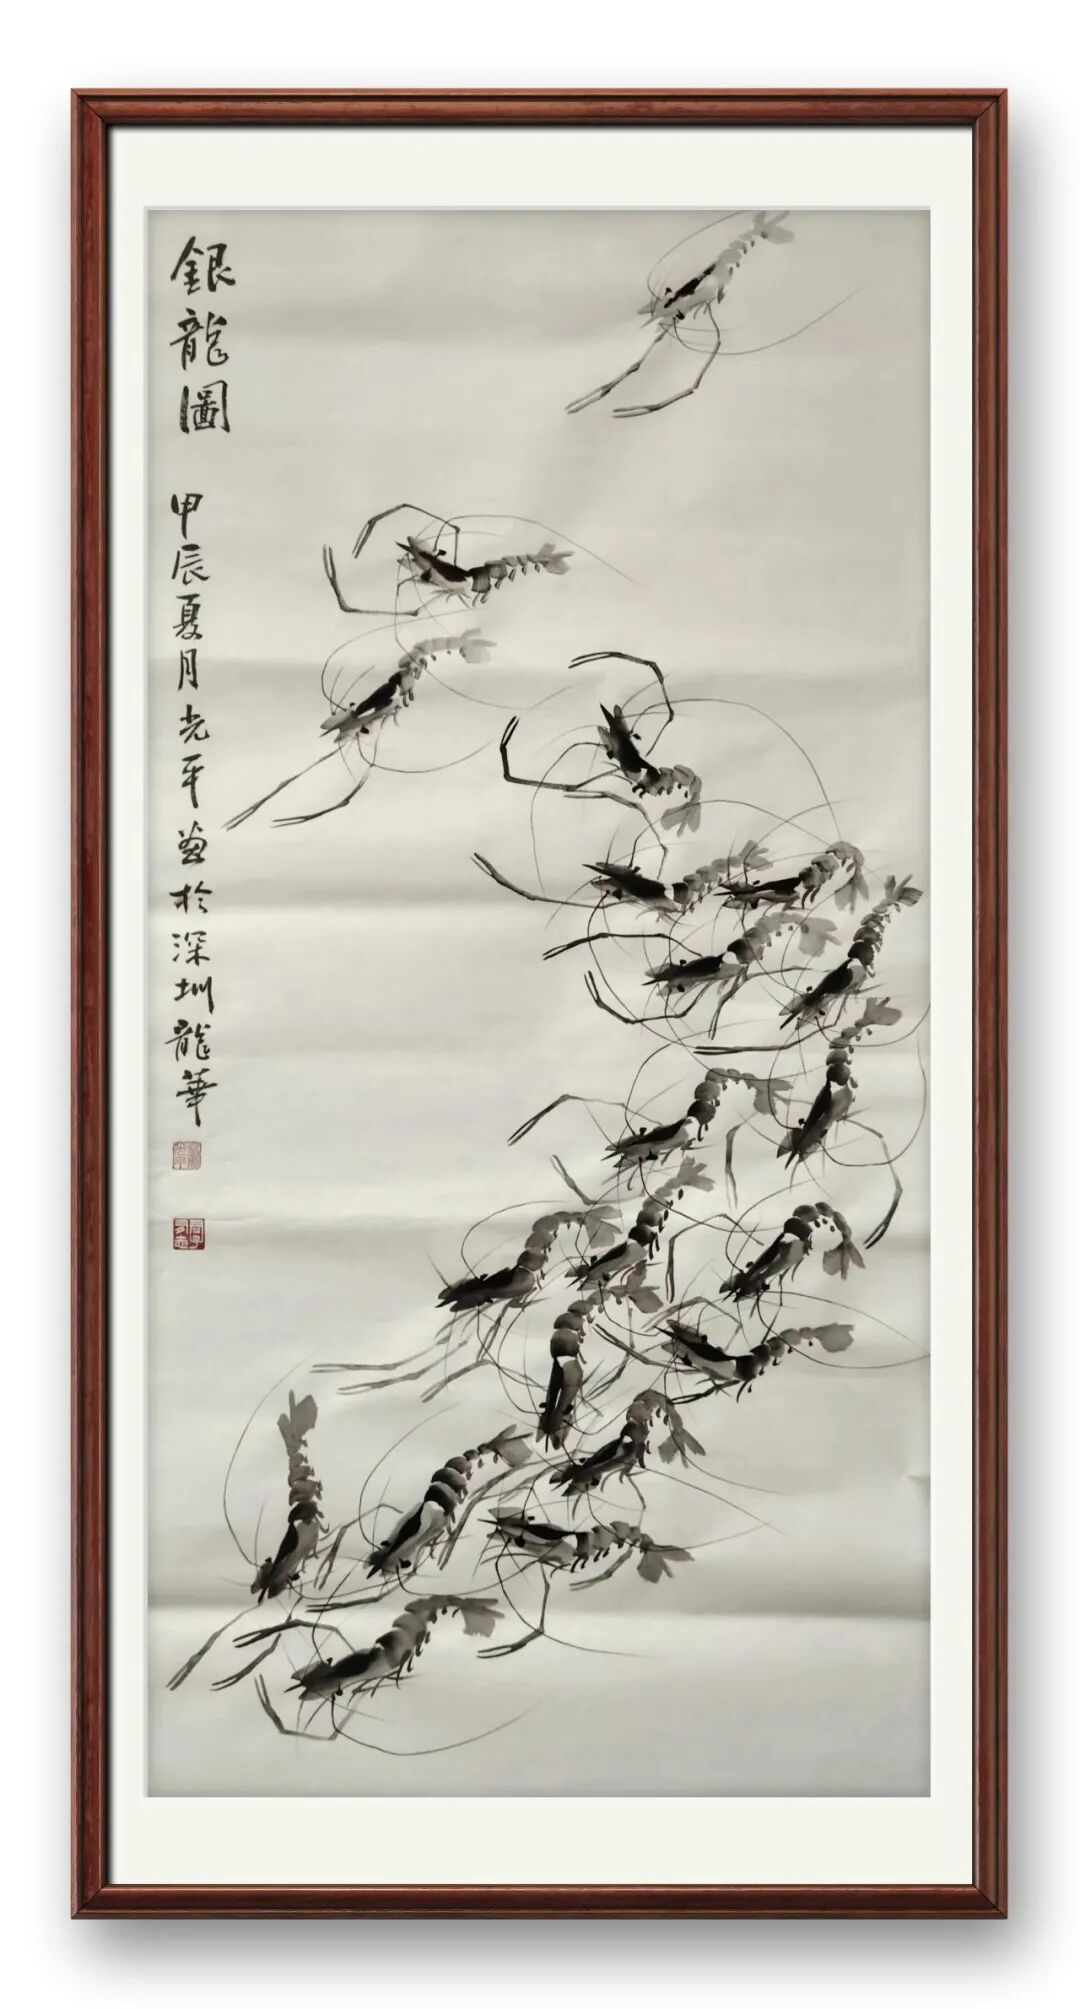 銀龍圖
甲辰夏月光平畫於深圳龍華